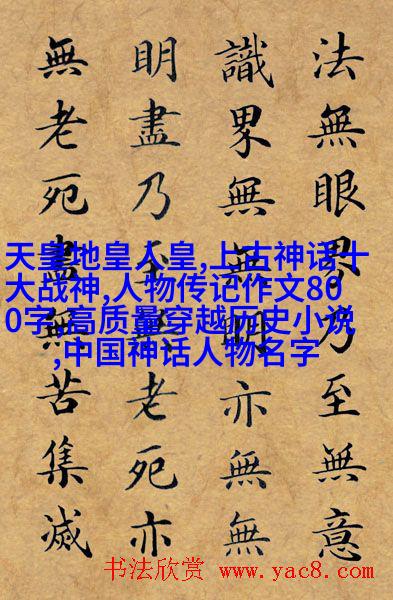 法無眼界乃至無意
識界無無明亦無無
明盡乃至無老死亦
無老死盡無苦集滅
天皇地皇人皇,上古神话十
大战神,人物传记作文80
0字,高质量穿越历史小说
,中国神话人物名字
书法欣赏 www.yac8.com